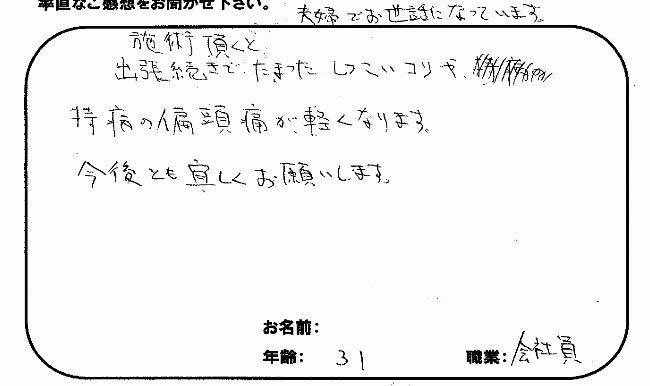 率直なご感想をお聞かせ下さい。
夫婦でお世話になっています。
施術頂くと
出張続きで、たまった しつこいコリや、
持病の偏頭痛が軽くなります。
今後とも宜しくお願いします。
お名前:
年齢: 31
職業: 会社員